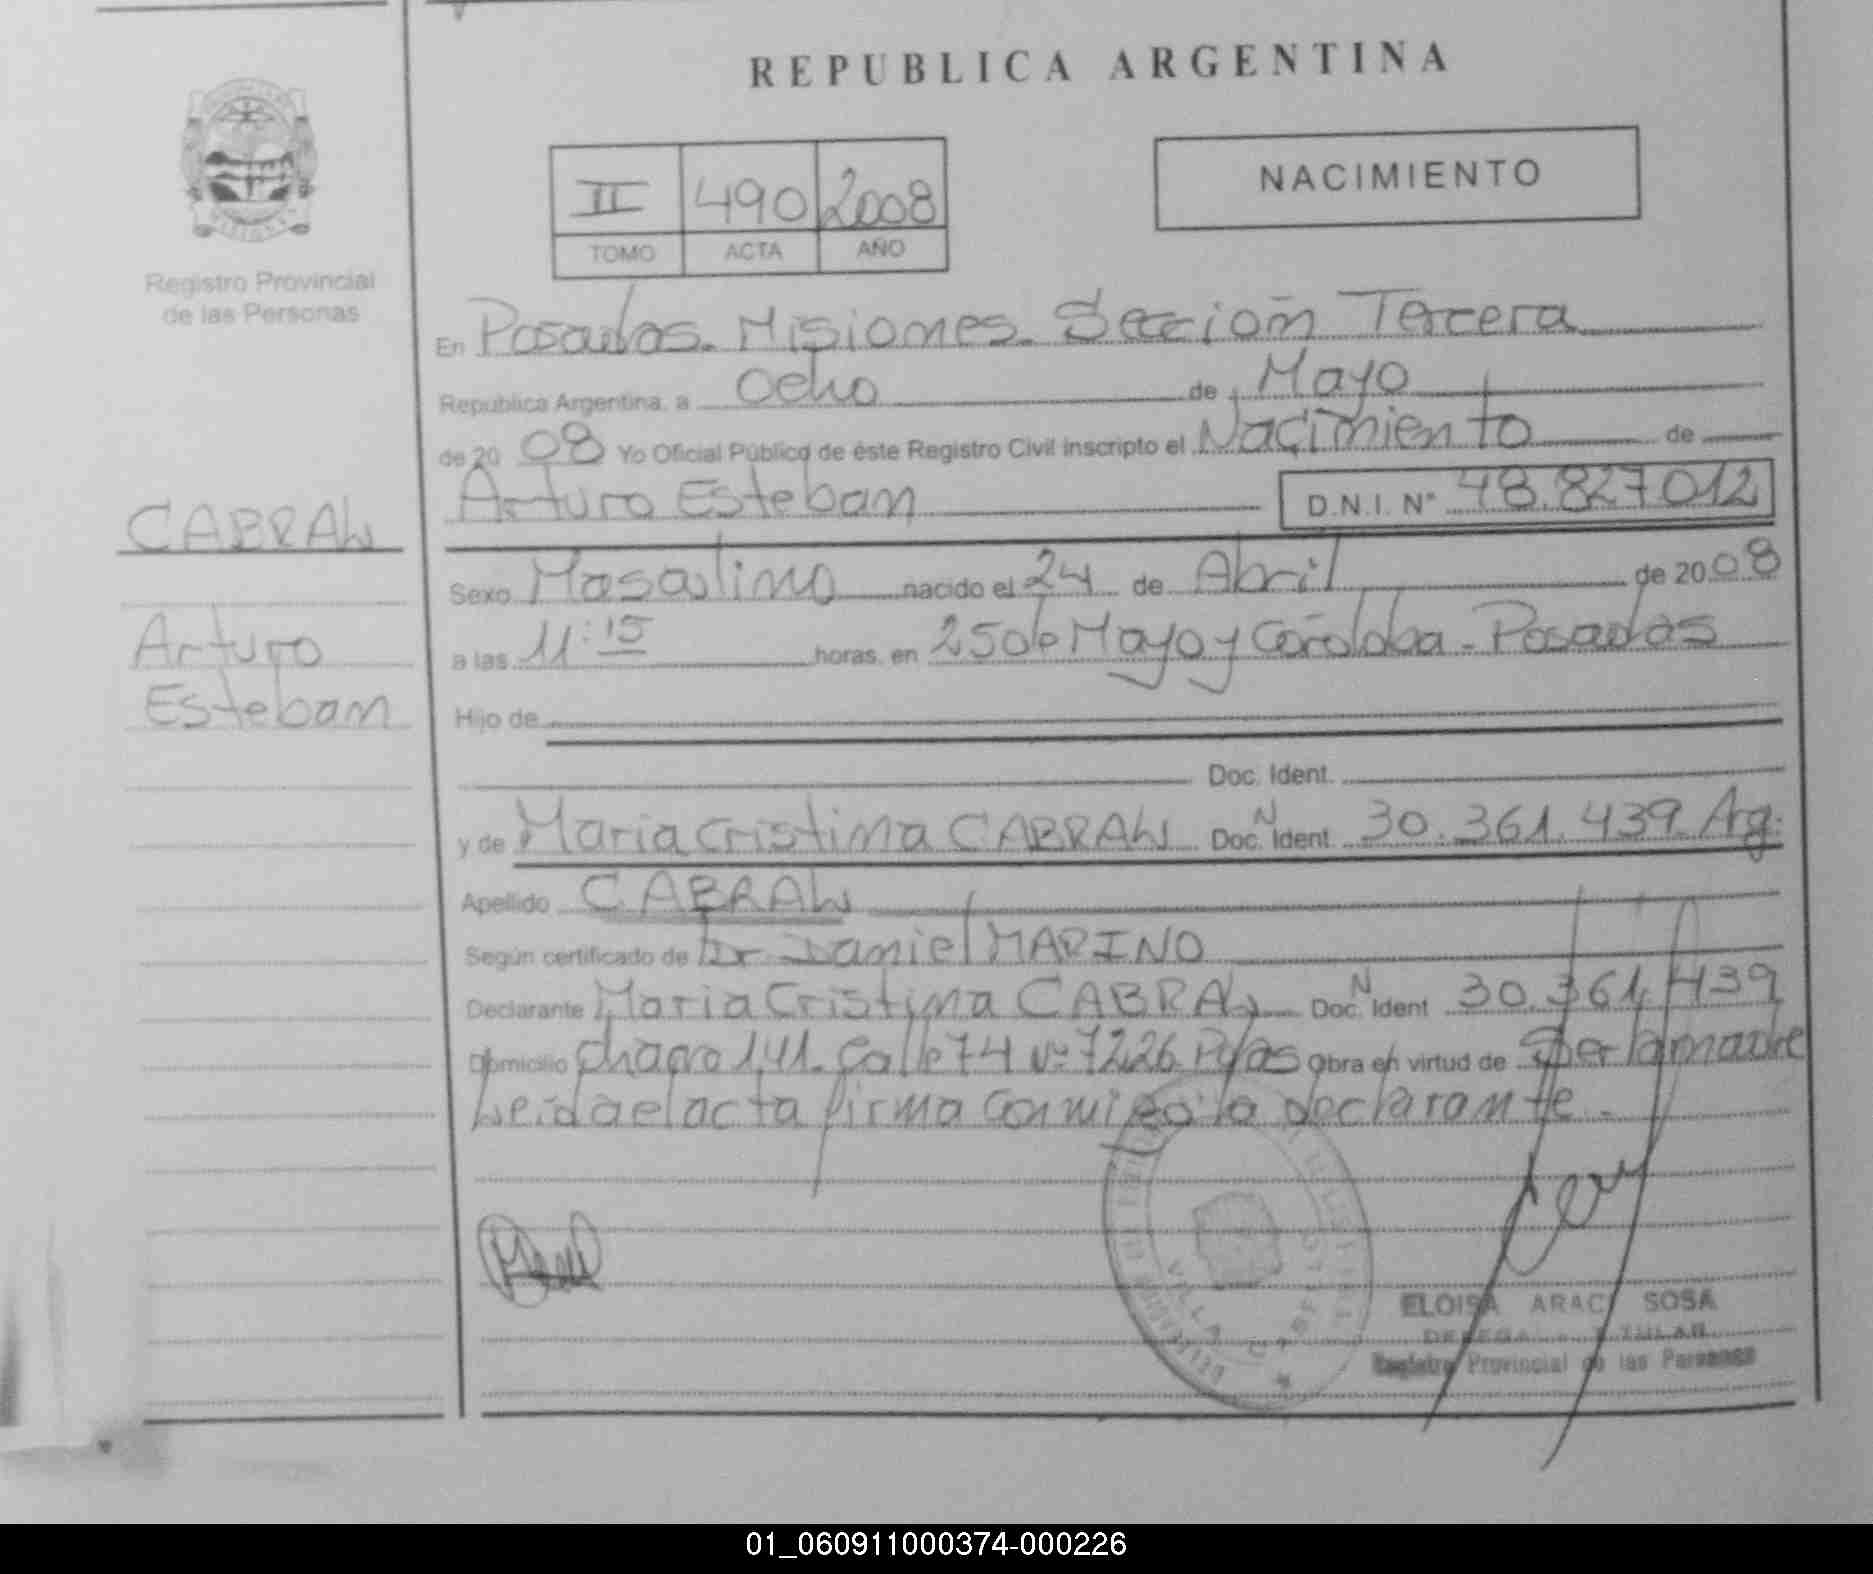 REPUBLICA ARGENTINA
NACIMIENTO
II 490 2008
TOMO ACTA AÑO
Registro Provincial
de las Personas
CABRAL
Arturo
Esteban
En Posadas. Misiones. Sección Tercera
Republica Argentina, a Ocho de Mayo
de 20 08 Yo Oficial Público de éste Registro Civil inscripto el Nacimiento de
Arturo Esteban D.N.I. N° 48.827012
Sexo Masculino nacido el 24 de Abril de 20 08
a las 11:15 horas, en 25 de Mayo y Córdoba - Posadas
Hijo de
Doc. Ident.
y de Maria Cristina CABRAL Doc. N Ident. 30.361.439. Arg.
Apellido CABRAL
Según certificado de Dr. Daniel MARINO
Declarante Maria Cristina CABRAL Doc. N Ident 30.361.439
Domicilio chacra 141. Calle 74 N° 7226 Pdas Obra en virtud de Ser la madre
Leida el acta firma conmigo la declarante.
VILLA
ELOISA ARACI SOSA
TITULAR
Registro Provincial de las Personas
01_060911000374-000226